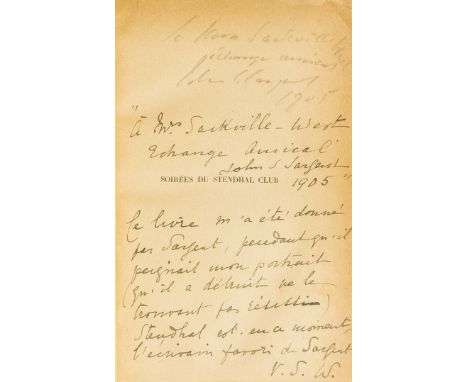 Sackville
échange amical
John S Sargent
1905
"À Mrs Sackville-West
Echange Amical
John S Sargent
SOIRÉES DU STENDHAL CLUB 1905"
Ce livre m'a été donné
par Sargent, pendant qu'il
peignait mon portrait
(qu'il a détruit ne le
trouvant pas réussi)
Stendhal est en ce moment,
l'écrivain favori de Sargent
V. S. W.